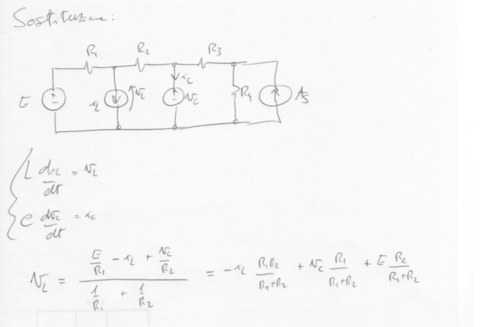 Sostituzione:
R₁ R₂ R₃
E i_L v_L i_c v_c R₄ A₅
L di_L/dt = v_L
C dv_c/dt = i_c
v_L = (E/R₁ - i_L + v_c/R₂) / (1/R₁ + 1/R₂) = -i_L R₁R₂/(R₁+R₂) + v_c R₁/(R₁+R₂) + E R₂/(R₁+R₂)